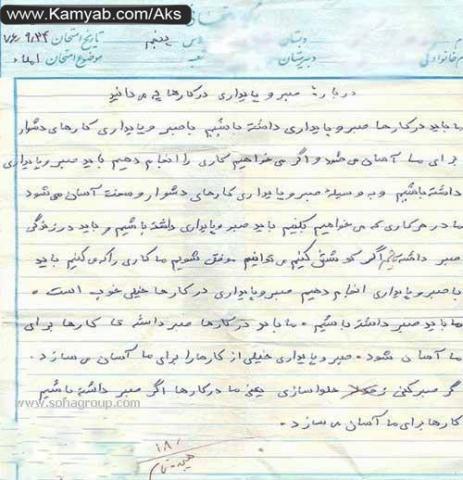 www.Kamyab.com/Aks
دبستان
درس
تاریخ امتحان ۷۶،۹،۲۴
دبیرستان
موضوع امتحان املاء
درباره صبر و پایداری در کارها چه می دانید
ما باید در کارها صبر و پایداری داشته باشیم با صبر و پایداری کارهای دشوار
برای ما آسان می شود و اگر می خواهیم کاری را انجام دهیم باید صبر و پایداری
داشته باشیم و به وسیله صبر و پایداری کارهای دشوار و سخت آسان می شود
ما در هر کاری که می خواهیم بکنیم باید صبر و پایداری داشته باشیم و باید در زندگی
صبر داشته باشیم اگر کوشش کنیم می توانیم موفق شویم ما کاری را که می کنیم باید
با صبر و پایداری انجام دهیم صبر و پایداری در کارها خیلی خوب است .
ما باید صبر داشته باشیم . ما باید در کارها صبر داشته تا کارها برای
ما آسان شود . صبر و پایداری خیلی از کارها را برای ما آسان می سازد .
گر صبر کنی ز حلوا سازی یعنی ما در کارها اگر صبر داشته باشیم
www.sohagroup.com
کارها برای ما آسان می سازد .
۱۸/